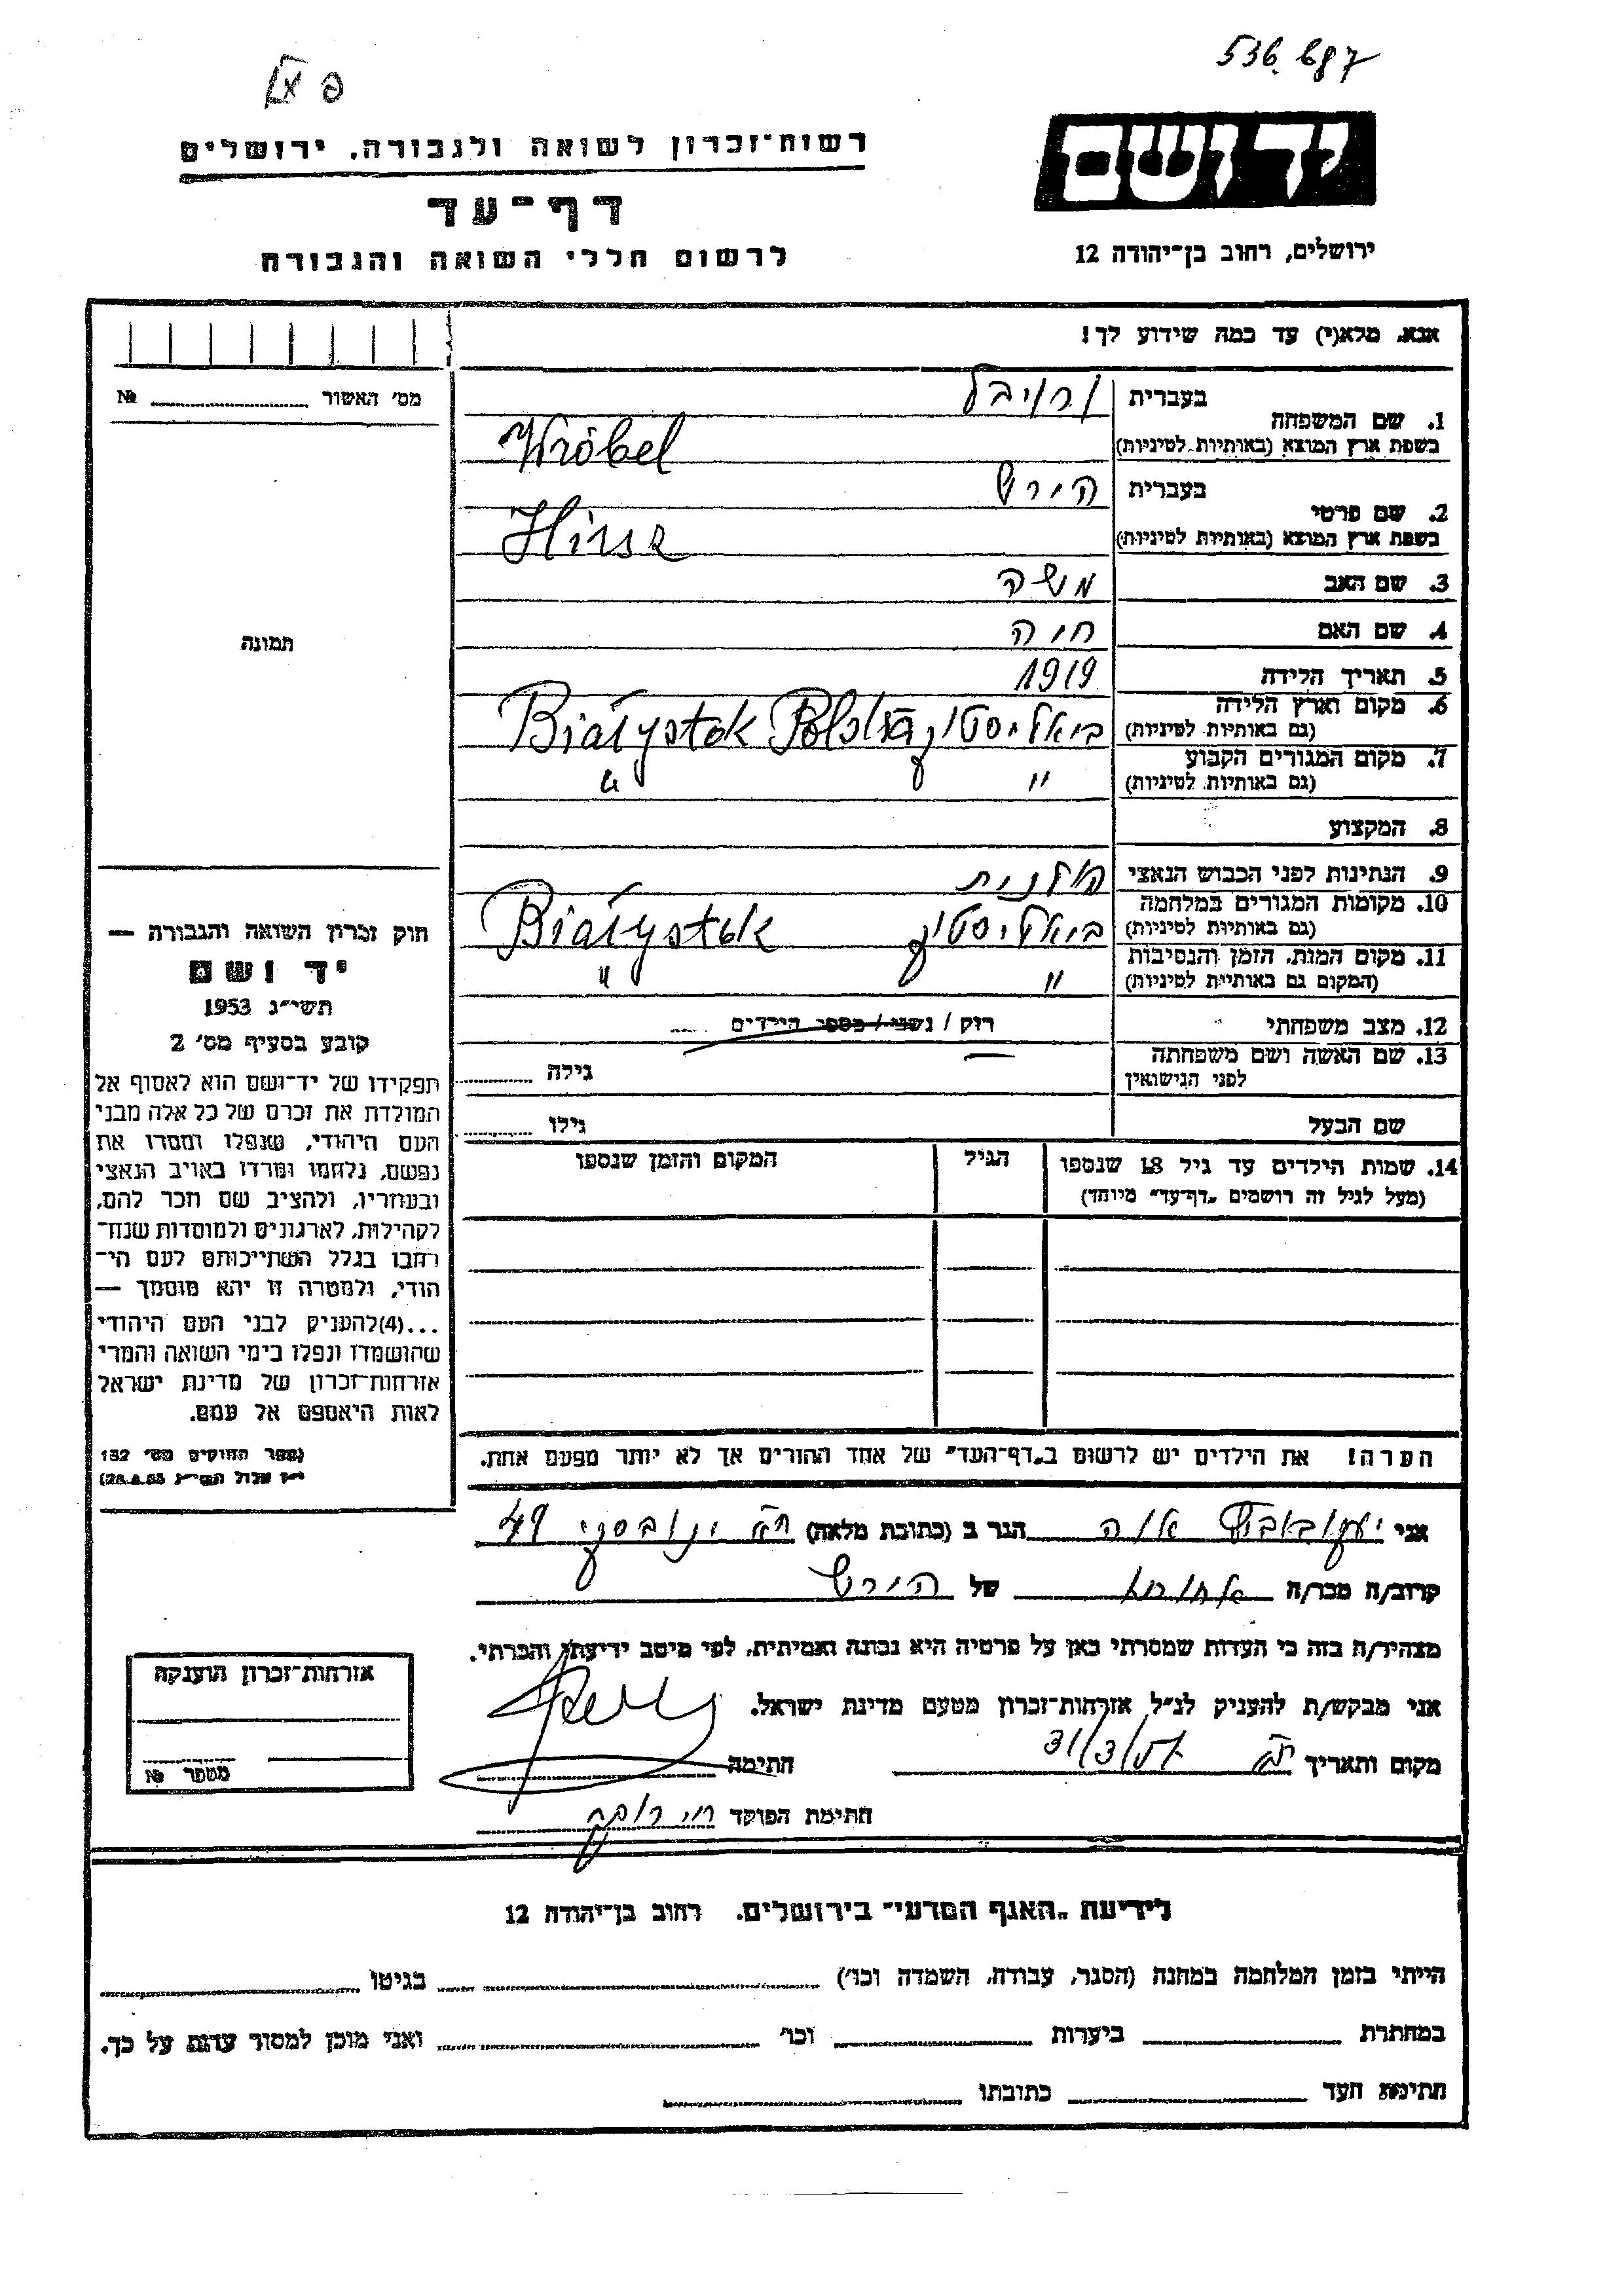 536.687
יד ושם
רשות־זכרון לשואה ולגבורה. ירושלים
דף־עד
לרשום חללי השואה והגבורה
ירושלים, רחוב בן־יהודה 12
אנא. מלא(י) עד כמה שידוע לך!
מס׳ האשור №
בעברית ורויבל
1. שם המשפחה
בשפת ארץ המוצא (באותיות לטיניות) Wróbel
בעברית הירש
2. שם פרטי
בשפת ארץ המוצא (באותיות לטיניות) Hirsz
3. שם האב משה
4. שם האם חיה
5. תאריך הלידה 1919
6. מקום וארץ הלידה
(גם באותיות לטיניות) ביאליסטוק Białystok Polska
7. מקום המגורים הקבוע
(גם באותיות לטיניות) " "
8. המקצוע
9. הנתינות לפני הכבוש הנאצי פולנית
10. מקומות המגורים במלחמה
(גם באותיות לטיניות) ביאליסטוק Białystok
11. מקום המות. הזמן והנסיבות
(המקום גם באותיות לטיניות) " "
12. מצב משפחתי רוק / נשוי / מספר הילדים
13. שם האשה ושם משפחתה
לפני הנישואין גילה
שם הבעל גילו
14. שמות הילדים עד גיל 18 שנספו הגיל המקום והזמן שנספו
(מעל לגיל זה רושמים „דף־עד״ מיוחד)
הערה! את הילדים יש לרשום ב„דף־העד״ של אחד ההורים אך לא יותר מפעם אחת.
תמונה
חוק זכרון השואה והגבורה —
יד ושם
תשי״ג 1953
קובע בסעיף מס׳ 2
תפקידו של יד־ושם הוא לאסוף אל
המולדת את זכרם של כל אלה מבני
העם היהודי, שנפלו ומסרו את
נפשם, נלחמו ומרדו באויב הנאצי
ובעוזריו, ולהציב שם וזכר להם,
לקהילות, לארגונים ולמוסדות שנח־
רבו בגלל השתייכותם לעם הי־
הודי, ולמטרה זו יהא מוסמך —
...(4)להעניק לבני העם היהודי
שהושמדו ונפלו בימי השואה והמרי
אזרחות־זכרון של מדינת ישראל
לאות היאספם אל עמם.
(ספר החוקים מס׳ 132
אני יעקובוביץ הגר ב (כתובת מלאה) 49
קרוב/ה מכר/ה של הירש
מצהיר/ה בזה כי העדות שמסרתי כאן על פרטיה היא נכונה ואמיתית, לפי מיטב ידיעתי והכרתי.
אני מבקש/ת להעניק לנ״ל אזרחות־זכרון מטעם מדינת ישראל.
מקום ותאריך חתימה
חתימת הפוקד
אזרחות־זכרון הוענקה
מספר №
לידיעת „האגף המדעי״ בירושלים. רחוב בן־יהודה 12
הייתי בזמן המלחמה במחנה (הסגר, עבודה, השמדה וכו׳) בגיטו
במחתרת ביערות וכו׳ ואני מוכן למסור עדות על כך.
חתימת העד כתובתו